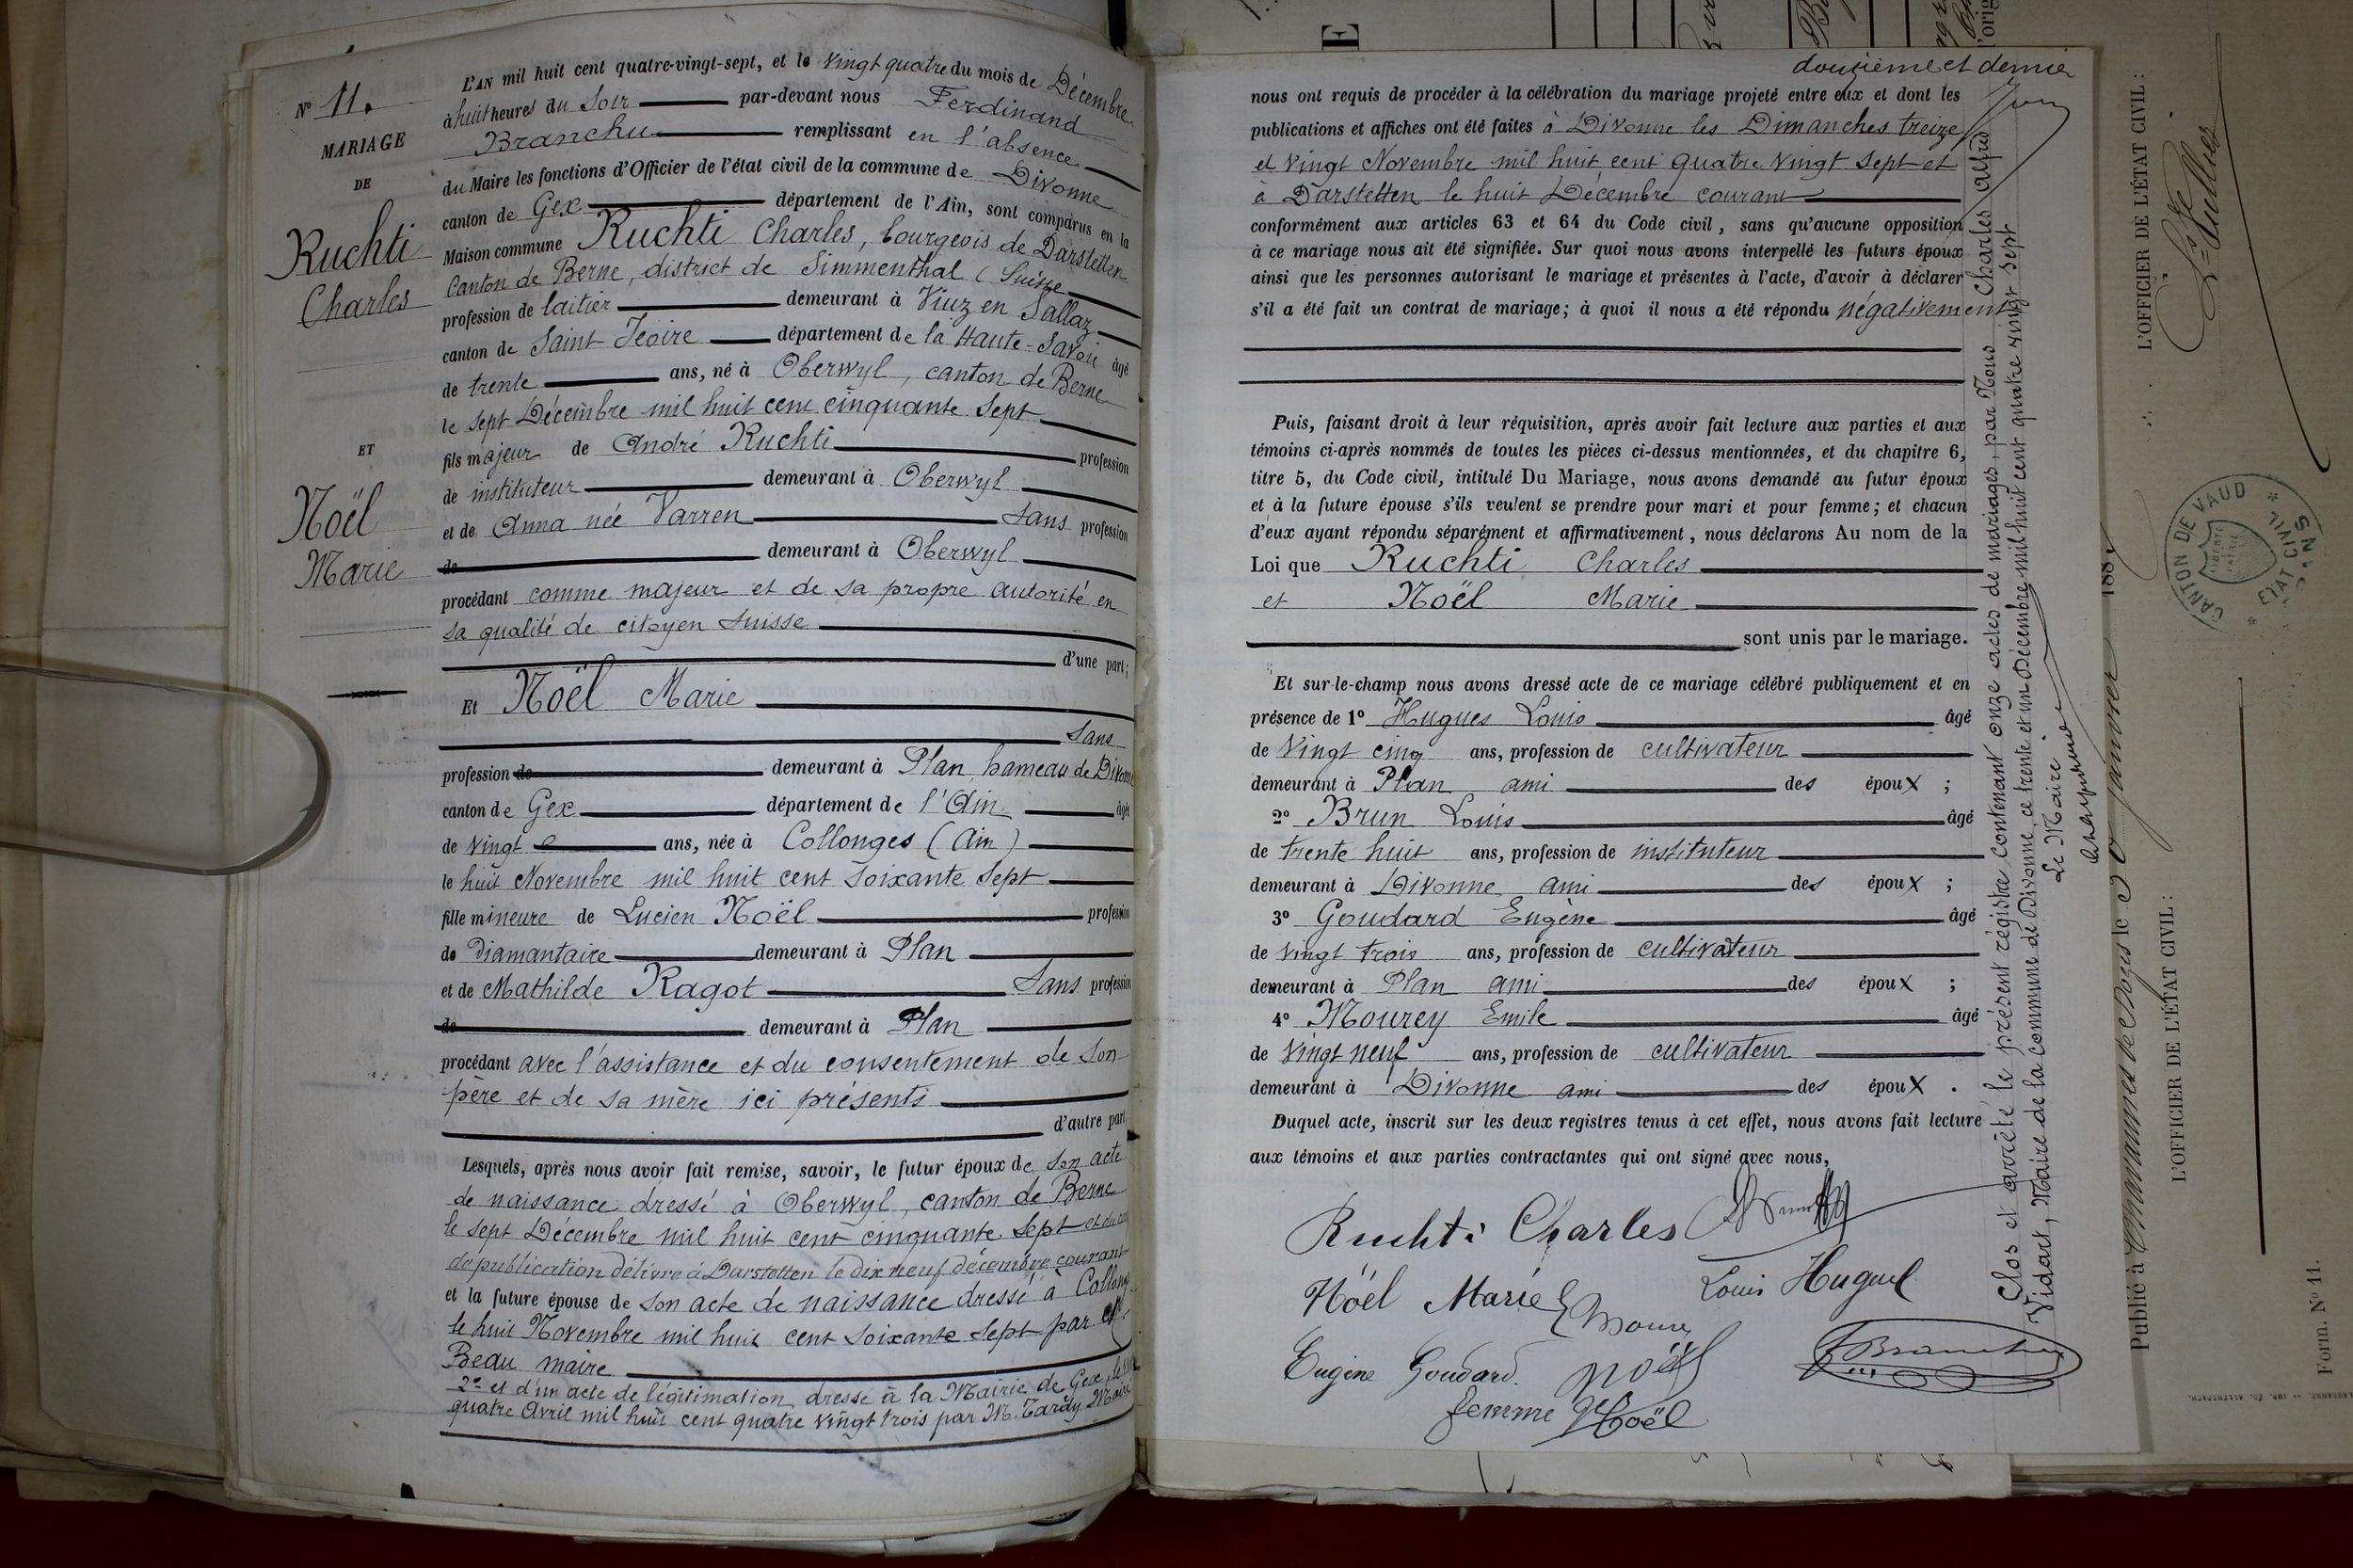 N° 11.
MARIAGE
DE
Ruchti
Charles
ET
Noël
Marie
L'AN mil huit cent quatre-vingt-sept, et le vingt quatre du mois de Décembre
à huit heures du Soir par-devant nous Ferdinand
Branchu remplissant en l'absence
du Maire les fonctions d'Officier de l'état civil de la commune de Divonne
canton de Gex département de l'Ain, sont comparus en la
Maison commune Ruchti Charles, bourgeois de Darstetten
Canton de Berne, district de Simmenthal (Suisse
profession de laitier demeurant à Viuz en Sallaz
canton de Saint Jeoire département de la Haute-Savoie âgé
de trente ans, né à Oberwyl, canton de Berne
le sept Décembre mil huit cent cinquante sept
fils majeur de André Ruchti profession
de instituteur demeurant à Oberwyl
et de Anna née Varren Sans profession
de demeurant à Oberwyl
procédant comme majeur et de sa propre autorité en
sa qualité de citoyen Suisse
d'une part;
Et Noël Marie
Sans
profession de demeurant à Plan, hameau de Divonne
canton de Gex département de l'Ain âgée
de vingt ans, née à Collonges (Ain)
le huit Novembre mil huit cent soixante sept
fille mineure de Lucien Noël profession
de Diamantaire demeurant à Plan
et de Mathilde Ragot Sans profession
de demeurant à Plan
procédant avec l'assistance et du consentement de son
père et de sa mère ici présents
d'autre part
Lesquels, après nous avoir fait remise, savoir, le futur époux de son acte
de naissance dressé à Oberwyl, canton de Berne
le sept Décembre mil huit cent cinquante sept et
de publication délivré à Darstetten le dix neuf décembre courant
et la future épouse de son acte de naissance dressé à Collong
le huit Novembre mil huit cent soixante sept par
Beau maire
2° et d'un acte de légitimation dressé à la Mairie de Gex, le
quatre Avril mil huit cent quatre vingt trois par M. Tardy Maire
douzième et dernier
nous ont requis de procéder à la célébration du mariage projeté entre eux et dont les
publications et affiches ont été faites à Divonne les Dimanches treize
et vingt Novembre mil huit cent quatre vingt sept et
à Darstetten le huit Décembre courant
conformément aux articles 63 et 64 du Code civil, sans qu'aucune opposition
à ce mariage nous ait été signifiée. Sur quoi nous avons interpellé les futurs époux
ainsi que les personnes autorisant le mariage et présentes à l'acte, d'avoir à déclarer
s'il a été fait un contrat de mariage; à quoi il nous a été répondu négativement
Puis, faisant droit à leur réquisition, après avoir fait lecture aux parties et aux
témoins ci-après nommés de toutes les pièces ci-dessus mentionnées, et du chapitre 6,
titre 5, du Code civil, intitulé Du Mariage, nous avons demandé au futur époux
et à la future épouse s'ils veulent se prendre pour mari et pour femme; et chacun
d'eux ayant répondu séparément et affirmativement, nous déclarons Au nom de la
Loi que Ruchti Charles
et Noël Marie
sont unis par le mariage.
Et sur-le-champ nous avons dressé acte de ce mariage célébré publiquement et en
présence de 1° Hugues Louis âgé
de vingt cinq ans, profession de cultivateur
demeurant à Plan ami des époux ;
2° Brun Louis âgé
de trente huit ans, profession de instituteur
demeurant à Divonne ami des époux ;
3° Goudard Eugène âgé
de vingt trois ans, profession de cultivateur
demeurant à Plan ami des époux ;
4° Mourey Emile âgé
de vingt neuf ans, profession de cultivateur
demeurant à Divonne ami des époux .
Duquel acte, inscrit sur les deux registres tenus à cet effet, nous avons fait lecture
aux témoins et aux parties contractantes qui ont signé avec nous,
Ruchti Charles
Noël Marie
Louis Hugues
Eugène Goudard. Noël
Branchu
femme Noël
Clos et arrêté le présent registre contenant onze actes de mariages, par Nous Charles Alfred
Vidart, Maire de la commune de Divonne, ce trente et un Décembre mil huit cent quatre vingt sept
Le Maire
Publié à le 30 janvier 188
L'OFFICIER DE L'ÉTAT CIVIL :
L'OFFICIER DE L'ÉTAT CIVIL :
CANTON DE VAUD
ETAT CIVIL
Form. N° 11.